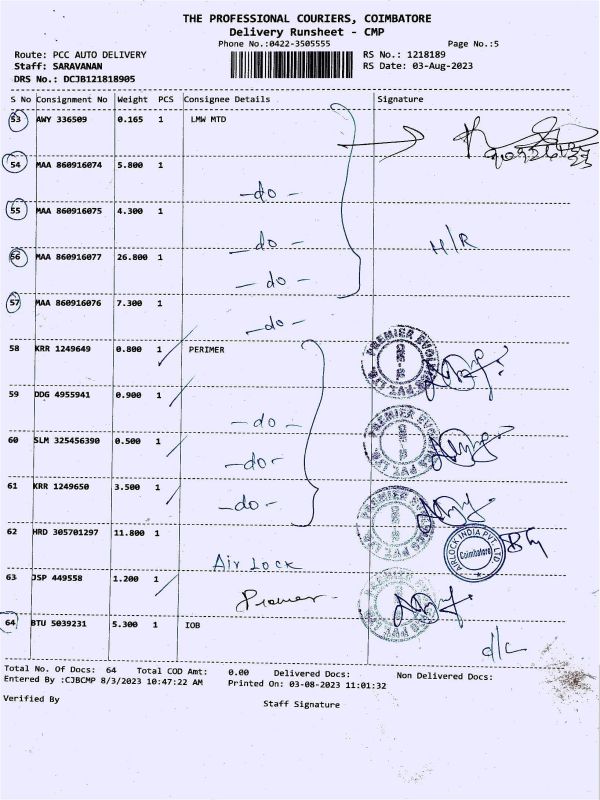 THE PROFESSIONAL COURIERS, COIMBATORE
Delivery Runsheet - CMP
Phone No.:0422-3505555 Page No.:5
Route: PCC AUTO DELIVERY RS No.: 1218189
Staff: SARAVANAN RS Date: 03-Aug-2023
DRS No.: DCJB121818905
S No Consignment No Weight PCS Consignee Details Signature
53 AWY 336509 0.165 1 LMW MTD
54 MAA 860916074 5.800 1
-do-
55 MAA 860916075 4.300 1
-do- H/R
56 MAA 860916077 26.800 1
-do-
57 MAA 860916076 7.300 1
-do-
58 KRR 1249649 0.800 1 PERIMER
59 DDG 4955941 0.900 1
-do-
60 SLM 325456390 0.500 1
-do-
61 KRR 1249650 3.500 1
-do-
62 HRD 305701297 11.800 1
AIRLOCK INDIA PVT. LTD. Coimbatore
Air Lock
63 JSP 449558 1.200 1
Premer
64 BTU 5039231 5.300 1 IOB
d/c
Total No. Of Docs: 64 Total COD Amt: 0.00 Delivered Docs: Non Delivered Docs:
Entered By :CJBCMP 8/3/2023 10:47:22 AM Printed On: 03-08-2023 11:01:32
Verified By Staff Signature